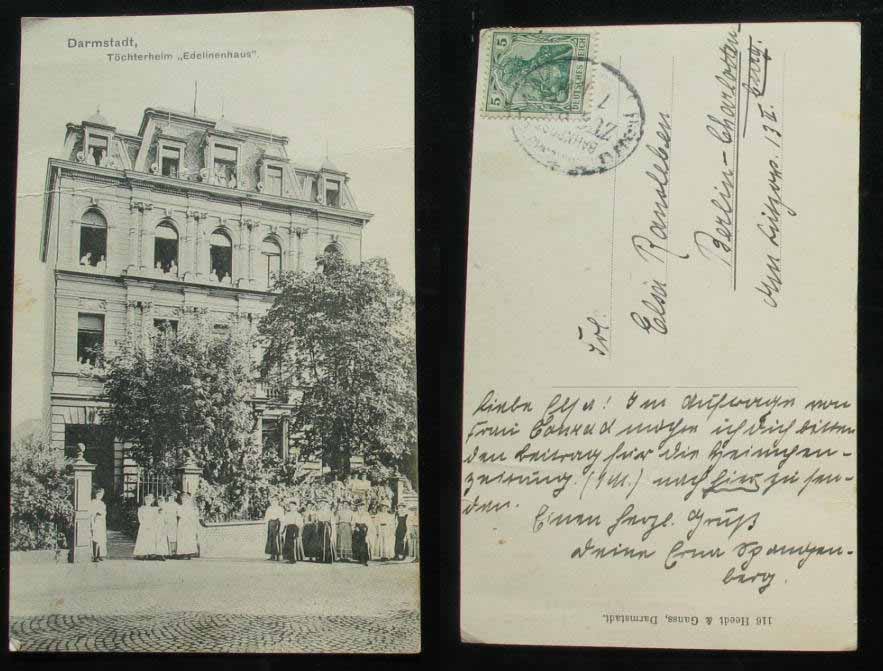 Darmstadt,
Töchterheim „Edelinenhaus".
5
5
DEUTSCHES REICH
Frl.
Elsa Ransleben
Berlin-Charlotten-
burg.
13 II.
Liebe Elsa! Im Auftrage von
Frau Conrad möchte ich Dich bitten
den Beitrag für die Heimchen-
zeitung (1 M.) nach hier zu sen-
den.
Einen herzl. Gruß
Deine Erna Spangen-
berg.
116 Heedt & Ganss, Darmstadt.